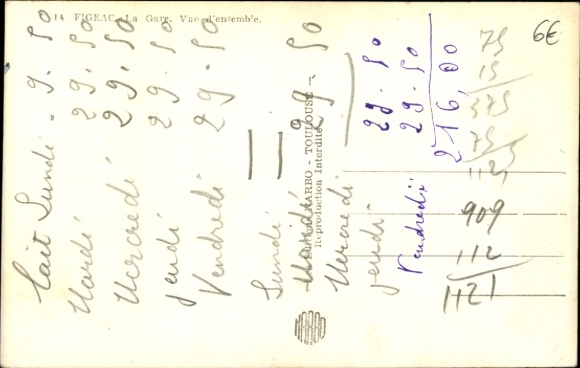 14 FIGEAC. La Gare. Vue d'ensemble.
6€
Lait Lundi - 9. 50
Mardi 29. 50
Mercredi 29. 50
Jeudi 29. 50
Vendredi 29. 50
Lundi
Mardi 29 50
Mercredi
Jeudi 29. 50
Vendredi 29. 50
216,00
ARBO - TOULOUSE
Reproduction Interdite
75
15
375
75
1125
909
112
1121